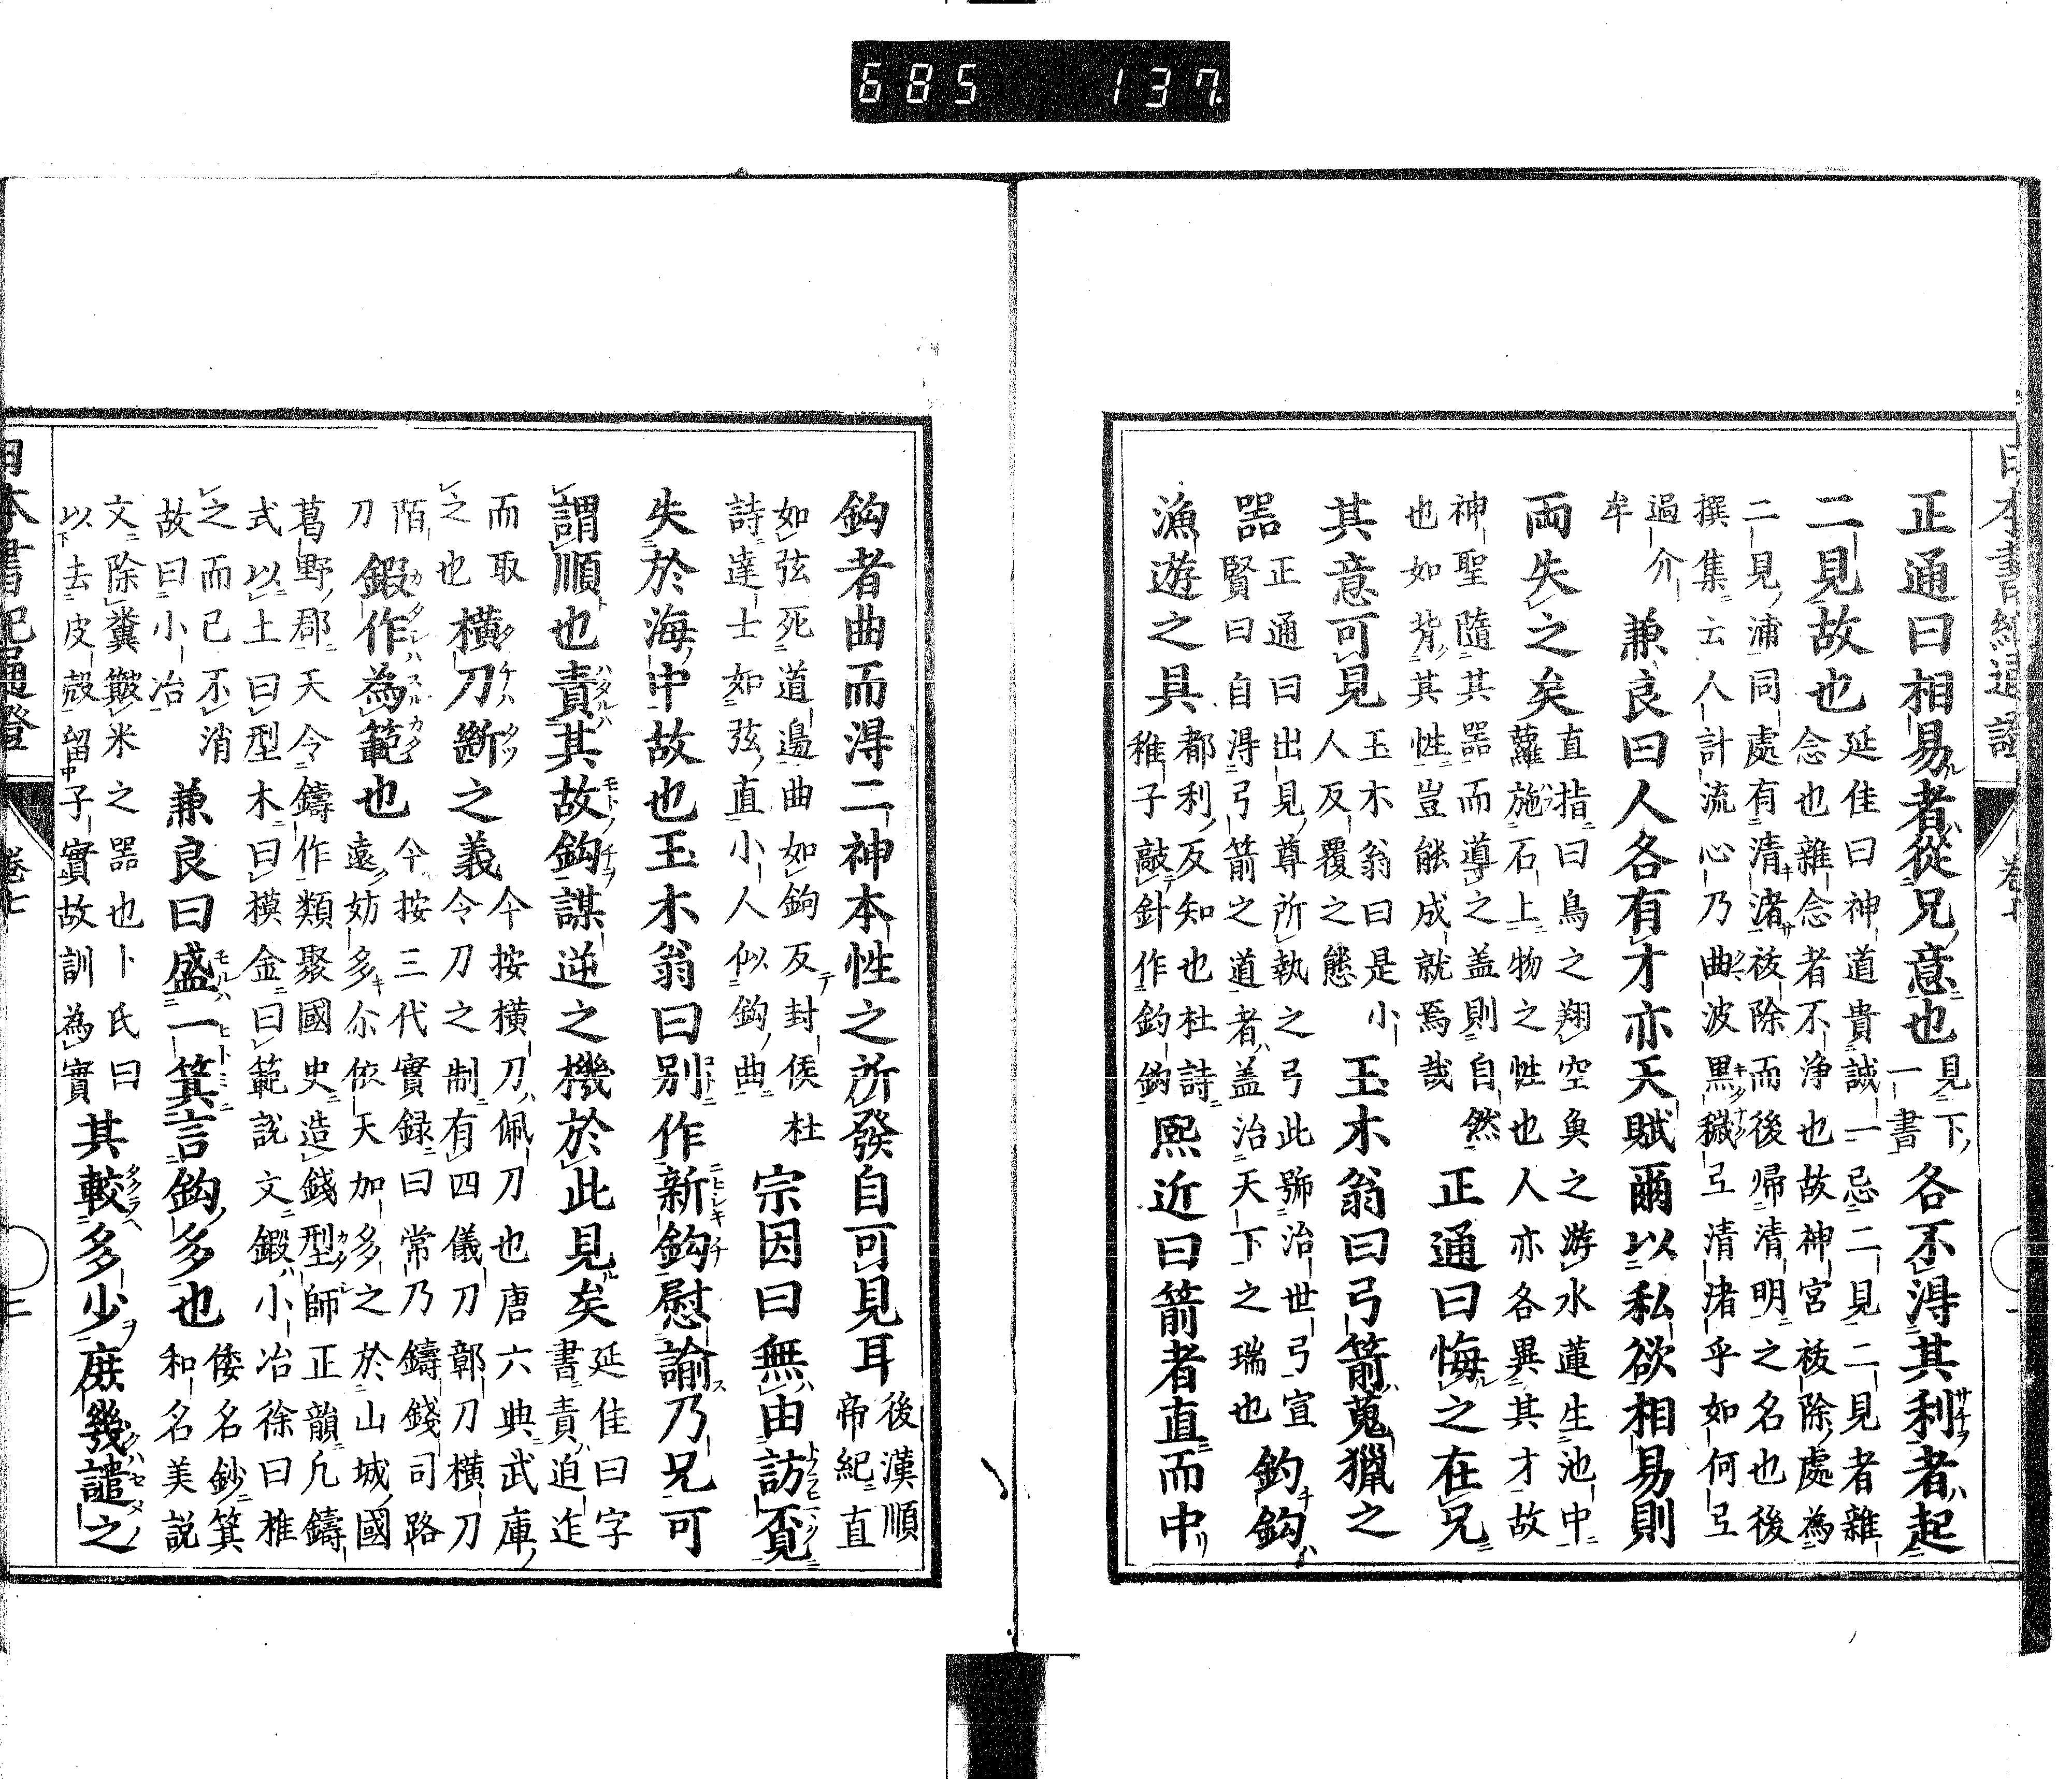 685 137
正通曰相易者從兄意也見下一書各不得其利者起
二見故也延佳曰神道貴誠一忌二見二見者雜
念也雜念者不淨也故神宮祓除處為
二見浦同處有清渚祓除而後帰清明之名也後
撰集云人計流心乃曲波黒穢弖清渚乎如何弖
過介牟兼良曰人各有才亦天賦爾以私欲相易則
両失之矣直指曰鳥之翔空魚之游水蓮生池中
蘿施石上物之性也人亦各異其才故
神聖隨其器而導之盖則自然
也如背其性豈能成就焉哉正通曰悔之在兄
其意可見玉木翁曰是小人反覆之態玉木翁曰弓箭蒐獵之
器正通曰出見尊所執之弓此號治世弓宣
賢曰自得弓箭之道者盖治天下之瑞也釣鈎
漁遊之具都利反知也杜詩
稚子敲針作釣鈎熙近曰箭者直而中
日本書紀通證
卷七
一
鈎者曲而得二神本性之所發自可見耳後漢順帝紀直
如弦死道邉曲如鉤反封侯杜
詩達士如弦直小人似鈎曲宗因曰無由訪覓
失於海中故也玉木翁曰別作新鈎慰諭乃兄可
謂順也責其故鈎謀逆之機於此見矣延佳曰字書責迫迮
而取之也横刀斷之義今按横刀佩刀也唐六典武庫
令刀之制有四儀刀鄣刀横刀
陌刀鍜作為範也今按三代實録曰常乃鑄錢司路
遠妨多尓依天加多之於山城國
葛野郡天令鑄作類聚國史造錢型師正韻凢鑄
式以土曰型木曰模金曰範説文鍜小冶徐曰椎
之而已不消
故曰小冶兼良曰盛一箕言鈎多也倭名鈔箕和名美説
文除糞簸米之器也卜氏曰
以去皮殻留中子實故訓為實其較多少庶幾譴之
日本書紀通證
卷七
二